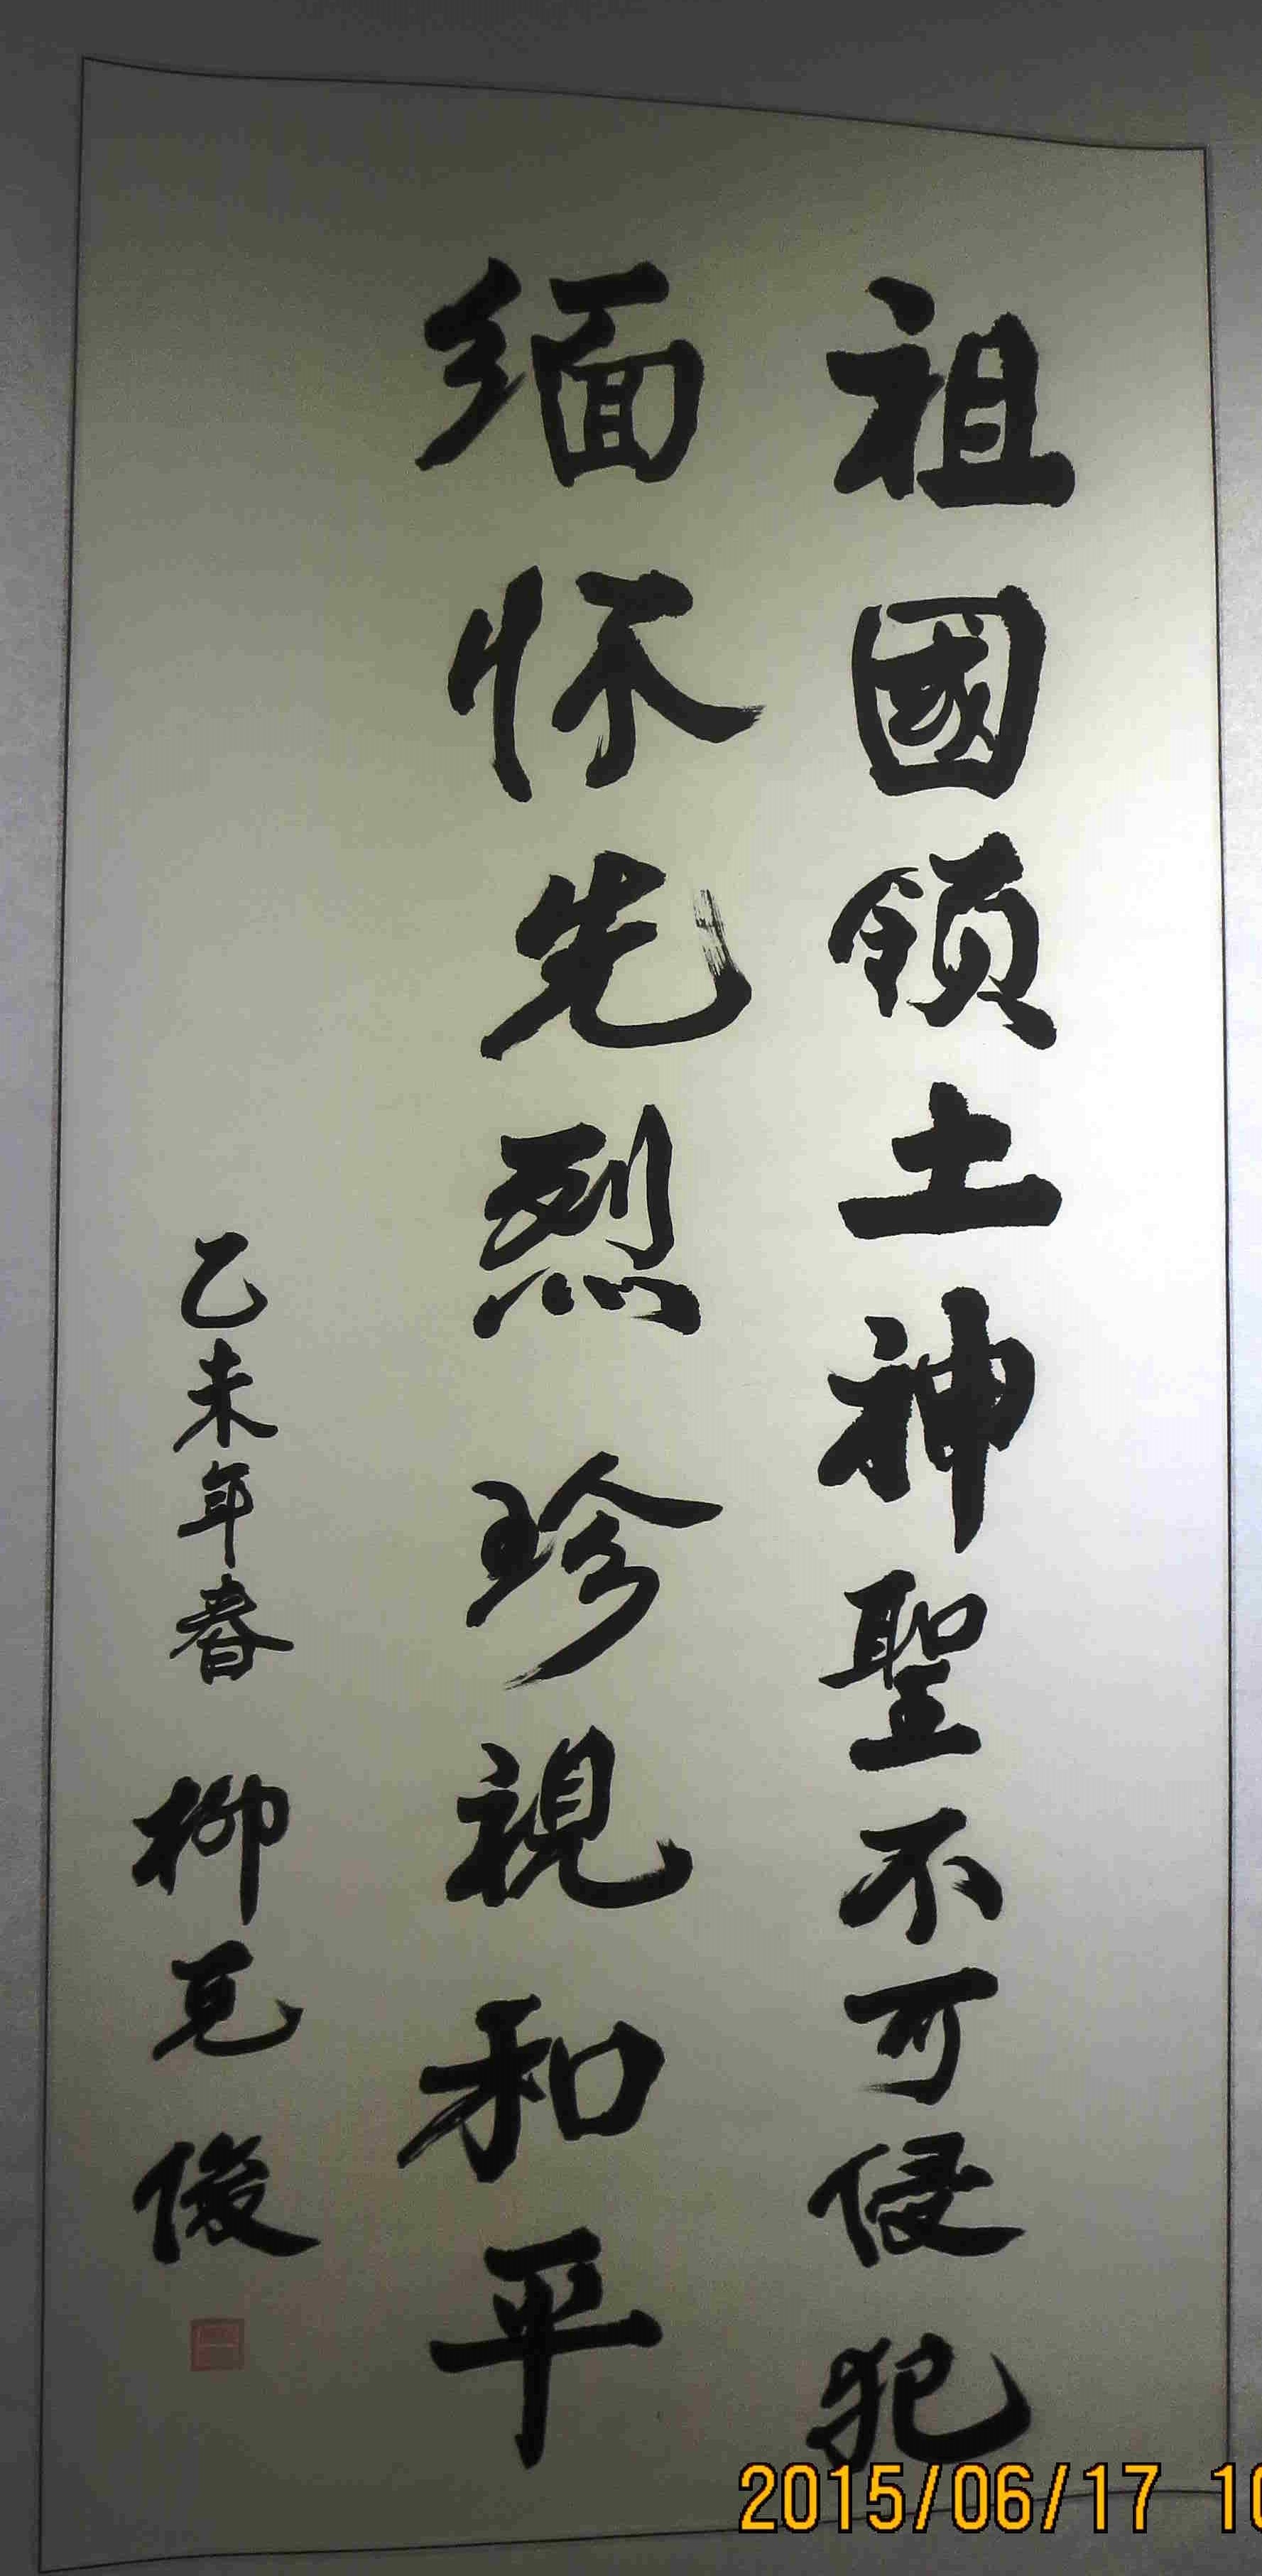 祖國领土神聖不可侵犯
缅怀先烈珍視和平
乙未年春 柳克俊
2015/06/17 10